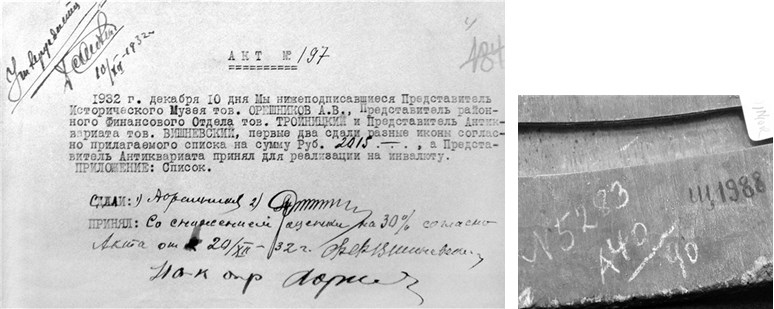 Утверждаю
10/XII-1932г.
АКТ № 197
484
1932 г. декабря 10 дня Мы нижеподписавшиеся Представитель
Исторического Музея тов. ОРЕШНИКОВ А.В., Представитель район-
ного Финансового Отдела тов. ТРОЙНИЦКИЙ и Представитель Антик-
вариата тов. ВИШНЕВСКИЙ, первые два сдали разные иконы соглас-
но прилагаемого списка на сумму Руб. 2015 —.—. , а Предста-
витель Антиквариата принял для реализации на инвалюту.
ПРИЛОЖЕНИЕ: Список.
СДАЛИ: 1) А Орешников 2)
ПРИНЯЛ: Со снижением оценки на 30% согласно
Акта от 20/XII-32 г.
N 5293
A40/90
Щ1988